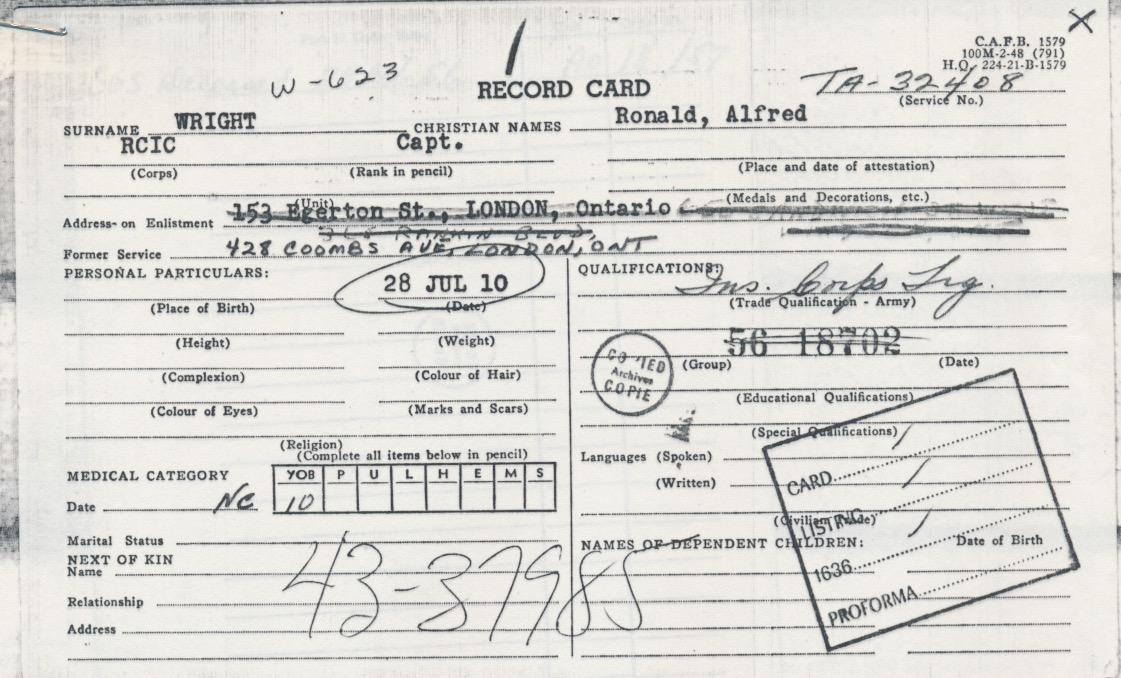 C.A.F.B. 1579
100M-2-48 (791)
H.Q. 224-21-B-1579
W-623
RECORD CARD
TA-32408
(Service No.)
SURNAME WRIGHT CHRISTIAN NAMES Ronald, Alfred
RCIC Capt.
(Corps) (Rank in pencil) (Place and date of attestation)
(Unit) (Medals and Decorations, etc.)
Address on Enlistment 153 Egerton St., LONDON, Ontario
BLVD,
Former Service 428 COOMBS AVE, LONDON, ONT
PERSONAL PARTICULARS: QUALIFICATIONS:
28 JUL 10 Ins. Corps Trg.
(Place of Birth) (Date) (Trade Qualification - Army)
56 18702
(Height) (Weight) (Group) (Date)
COPIED
Archives
COPIE
(Complexion) (Colour of Hair) (Educational Qualifications)
(Colour of Eyes) (Marks and Scars) (Special Qualifications)
(Religion) Languages (Spoken)
(Complete all items below in pencil) (Written)
MEDICAL CATEGORY YOB P U L H E M S
Date NC 10
(Civilian Trade)
Marital Status NAMES OF DEPENDENT CHILDREN: Date of Birth
NEXT OF KIN
Name
43-37985
Relationship
Address
CARD /
LISTING /
1636 /
PROFORMA